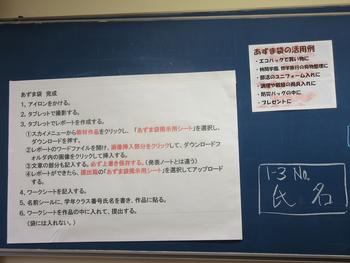 あずま袋 完成
1、アイロンをかける。
2、タブレットで撮影する。
3、タブレットでレポートを作成する。
①スカイメニューから教材作品をクリックし、「あずま袋掲示用シート」を選択し、
ダウンロードを押す。
②レポートのワードファイルを開け、画像挿入部分をクリックして、ダウンロードフ
ォルダ内の画像をクリックして挿入する。
③文章の部分も記入する。必ず上書き保存する。（発表ノートとは違う）
④レポートができたら、提出箱の「あずま袋掲示用シート」を選択してアップロード
する。
4、ワークシートを記入する。
5、名前シールに、学年クラス番号氏名を書き、作品に貼る。
6、ワークシートを作品の中に入れて、提出する。
（袋には入れない。）
あずま袋の活用例
・エコバッグで買い物に
・林間学園、修学旅行の荷物整理に
・部活のユニフォーム入れに
・調理や戦隊の用具入れに
・防災バッグの中に
・プレゼントに
1-3 No.
氏名